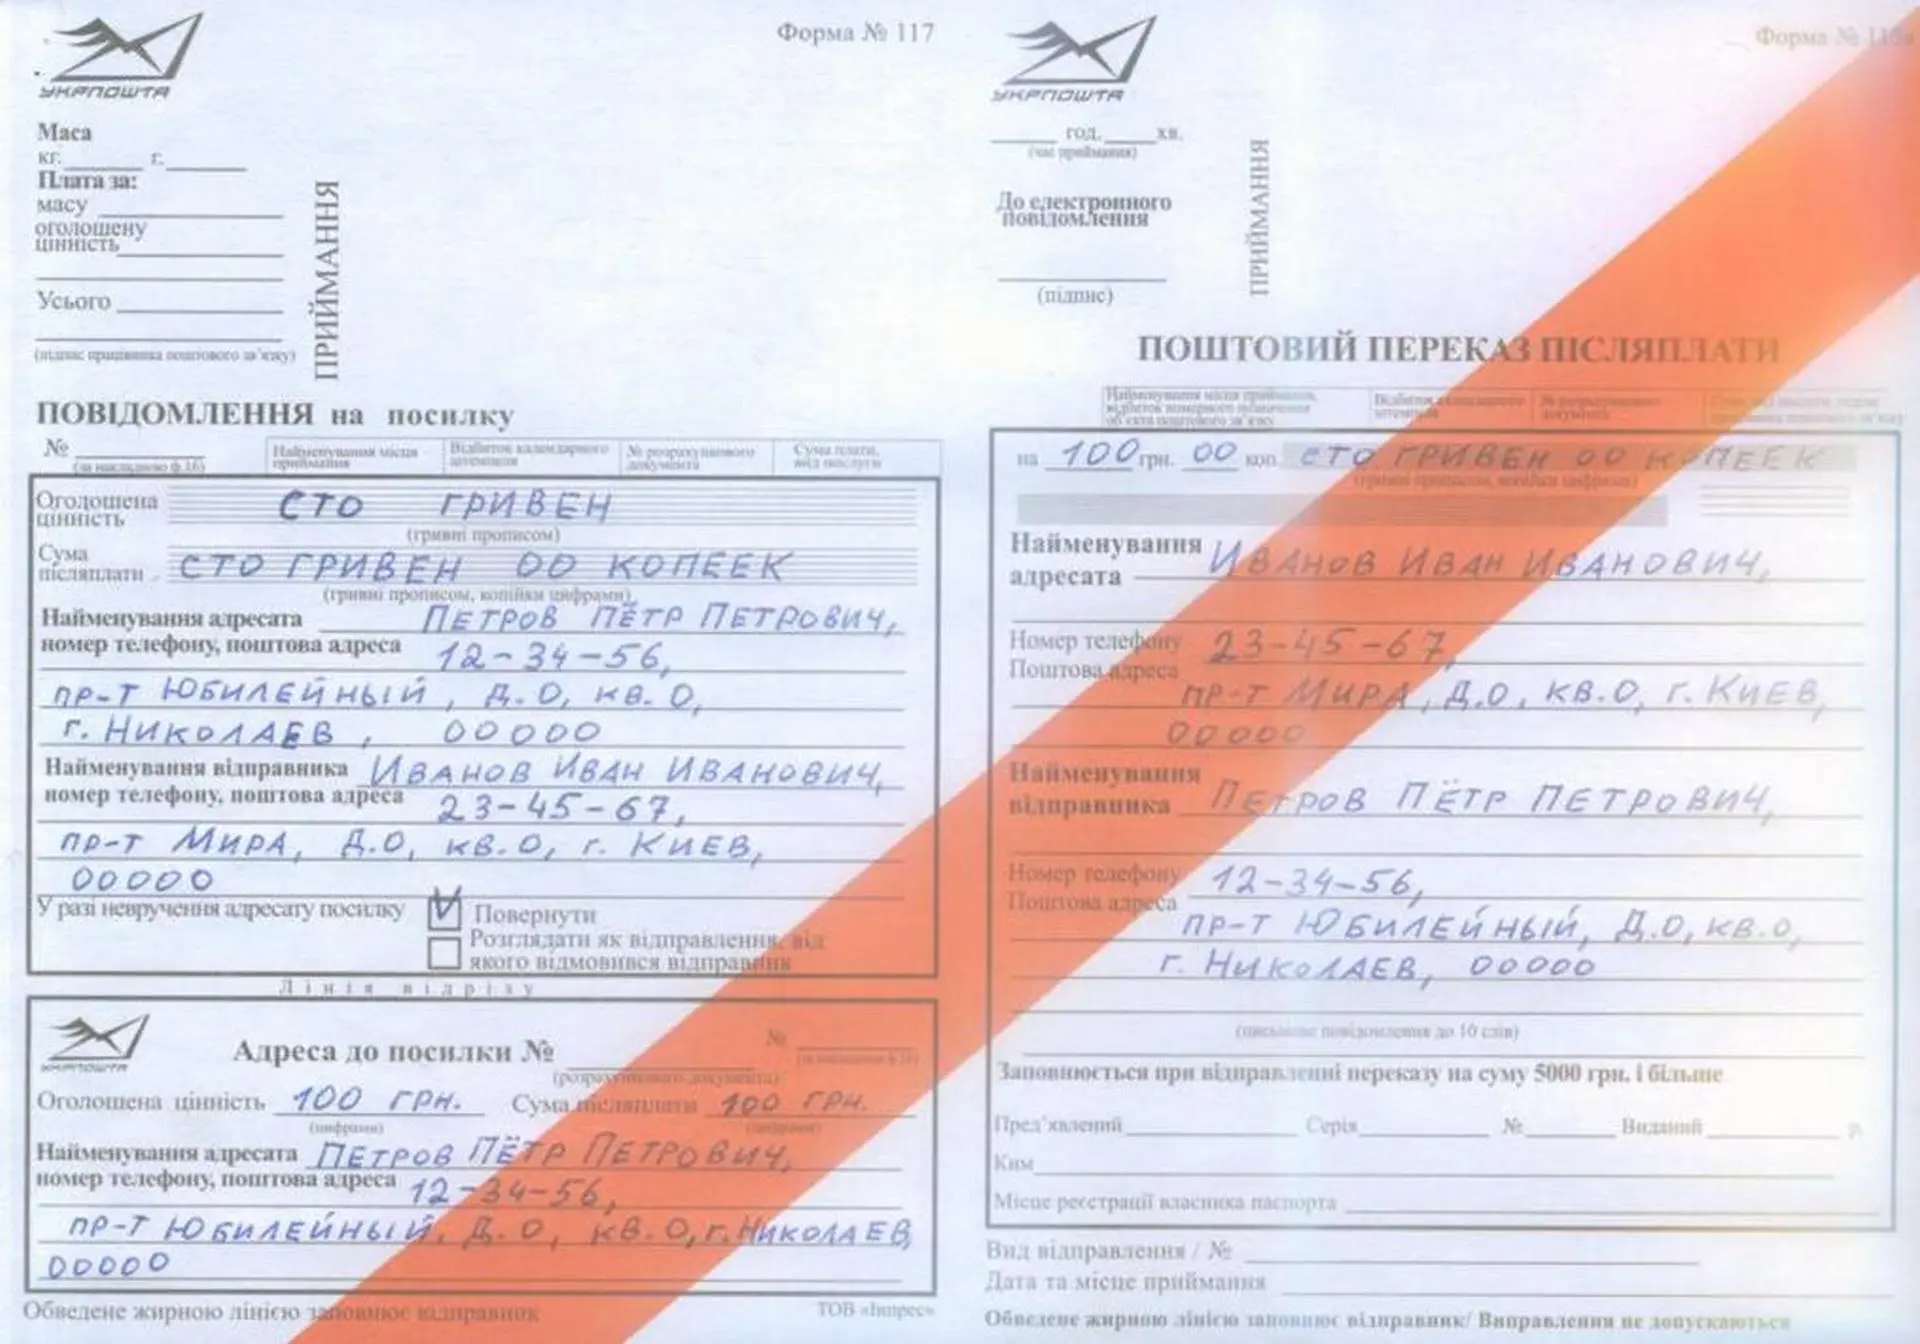 УКРПОШТА
Форма № 117
Маса
кг. г.
Плата за:
масу
оголошену
цінність
Усього
(підпис працівника поштового зв'язку)
ПРИЙМАННЯ
ПОВІДОМЛЕННЯ на посилку
№
(за накладною ф.16)
Найменування місця
приймання
Відбиток календарного
штемпеля
№ розрахункового
документа
Сума плати,
вид послуги
Оголошена
цінність
СТО ГРИВЕН
(гривні прописом)
Сума
післяплати
СТО ГРИВЕН 00 КОПЕЕК
(гривні прописом, копійки цифрами)
Найменування адресата ПЕТРОВ ПЁТР ПЕТРОВИЧ,
номер телефону, поштова адреса 12-34-56,
ПР-Т ЮБИЛЕЙНЫЙ, Д.0, КВ.0,
Г. НИКОЛАЕВ, 00000
Найменування відправника ИВАНОВ ИВАН ИВАНОВИЧ,
номер телефону, поштова адреса 23-45-67,
ПР-Т МИРА, Д.0, КВ.0, Г. КИЕВ,
00000
У разі невручення адресату посилку V Повернути
Розглядати як відправлення, від
якого відмовився відправник
Лінія відрізу
УКРПОШТА
Адреса до посилки №
(розрахункового документа)
№
(за накладною ф.16)
Оголошена цінність 100 ГРН. Сума післяплати 100 ГРН.
(цифрами) (цифрами)
Найменування адресата ПЕТРОВ ПЁТР ПЕТРОВИЧ,
номер телефону, поштова адреса 12-34-56,
ПР-Т ЮБИЛЕЙНЫЙ, Д.0, КВ.0, Г. НИКОЛАЕВ,
00000
Обведене жирною лінією заповнює відправник
ТОВ «Інпрес»
УКРПОШТА
Форма №
год. хв.
(час приймання)
До електронного
повідомлення
(підпис)
ПРИЙМАННЯ
ПОШТОВИЙ ПЕРЕКАЗ ПІСЛЯПЛАТИ
Найменування місця приймання,
об'єкта поштового зв'язку
Відбиток календарного
штемпеля
№ розрахункового
документа
на 100 грн. 00 коп. СТО ГРИВЕН 00 КОПЕЕК
(гривні прописом, копійки цифрами)
Найменування
адресата
ИВАНОВ ИВАН ИВАНОВИЧ,
Номер телефону 23-45-67,
Поштова адреса
ПР-Т МИРА, Д.0, КВ.0, Г. КИЕВ,
00000
Найменування
відправника ПЕТРОВ ПЁТР ПЕТРОВИЧ,
Номер телефону 12-34-56,
Поштова адреса
ПР-Т ЮБИЛЕЙНЫЙ, Д.0, КВ.0,
Г. НИКОЛАЕВ, 00000
(письмове повідомлення до 10 слів)
Заповнюється при відправленні переказу на суму 5000 грн. і більше
Пред'явлений Серія № Виданий р.
Ким
Місце реєстрації власника паспорта
Вид відправлення / №
Дата та місце приймання
Обведене жирною лінією заповнює відправник/ Виправлення не допускаються